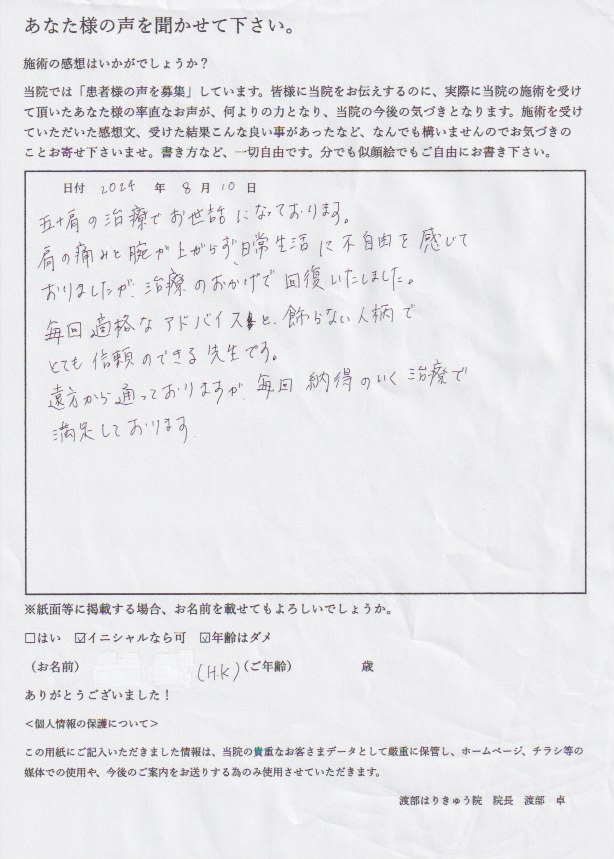 あなた様の声を聞かせて下さい。
施術の感想はいかがでしょうか？
当院では「患者様の声を募集」しています。皆様に当院をお伝えするのに、実際に当院の施術を受け
て頂いたあなた様の率直なお声が、何よりの力となり、当院の今後の気づきとなります。施術を受け
ていただいた感想文、受けた結果こんな良い事があったなど、なんでも構いませんのでお気づきの
ことお寄せ下さいませ。書き方など、一切自由です。分でも似顔絵でもご自由にお書き下さい。
日付 2024 年 8 月 10 日
五十肩の治療でお世話になっております。
肩の痛みと腕が上がらず日常生活に不自由を感じて
おりましたが、治療のおかげで回復いたしました。
毎回適格なアドバイスと、飾らない人柄で
とても信頼のできる先生です。
遠方から通っておりますが、毎回納得のいく治療で
満足しております。
※紙面等に掲載する場合、お名前を載せてもよろしいでしょうか。
□はい ☑イニシャルなら可 ☑年齢はダメ
（お名前） (H.K) （ご年齢） 歳
ありがとうございました！
＜個人情報の保護について＞
この用紙にご記入いただきました情報は、当院の貴重なお客さまデータとして厳重に保管し、ホームページ、チラシ等の
媒体での使用や、今後のご案内をお送りする為のみ使用させていただきます。
渡部はりきゅう院 院長 渡部 卓